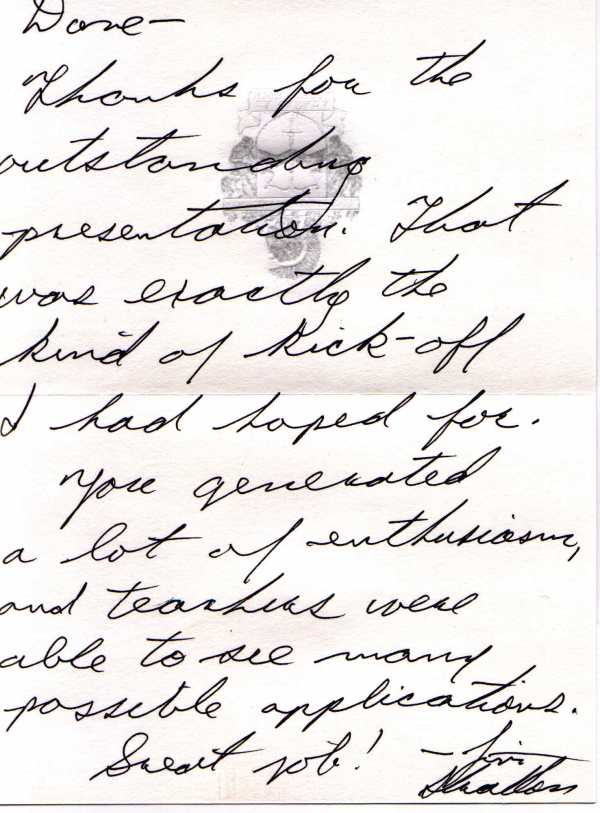 Dave-
Thanks for the
outstanding
presentation. That
was exactly the
kind of kick-off
I had hoped for.
You generated
a lot of enthusiasm,
and teachers were
able to see many
possible applications.
Great job! - Jim
Stratton